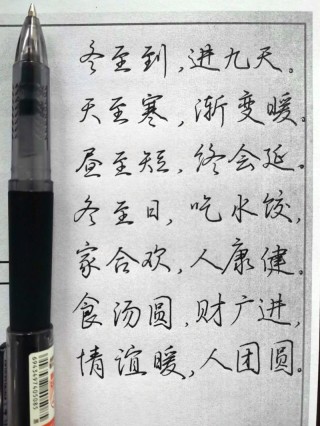 冬至到，进九天。
天至寒，渐变暖。
昼至短，终会延。
冬至日，吃水饺，
家合欢，人康健。
食汤圆，财广进，
情谊暖，人团圆。